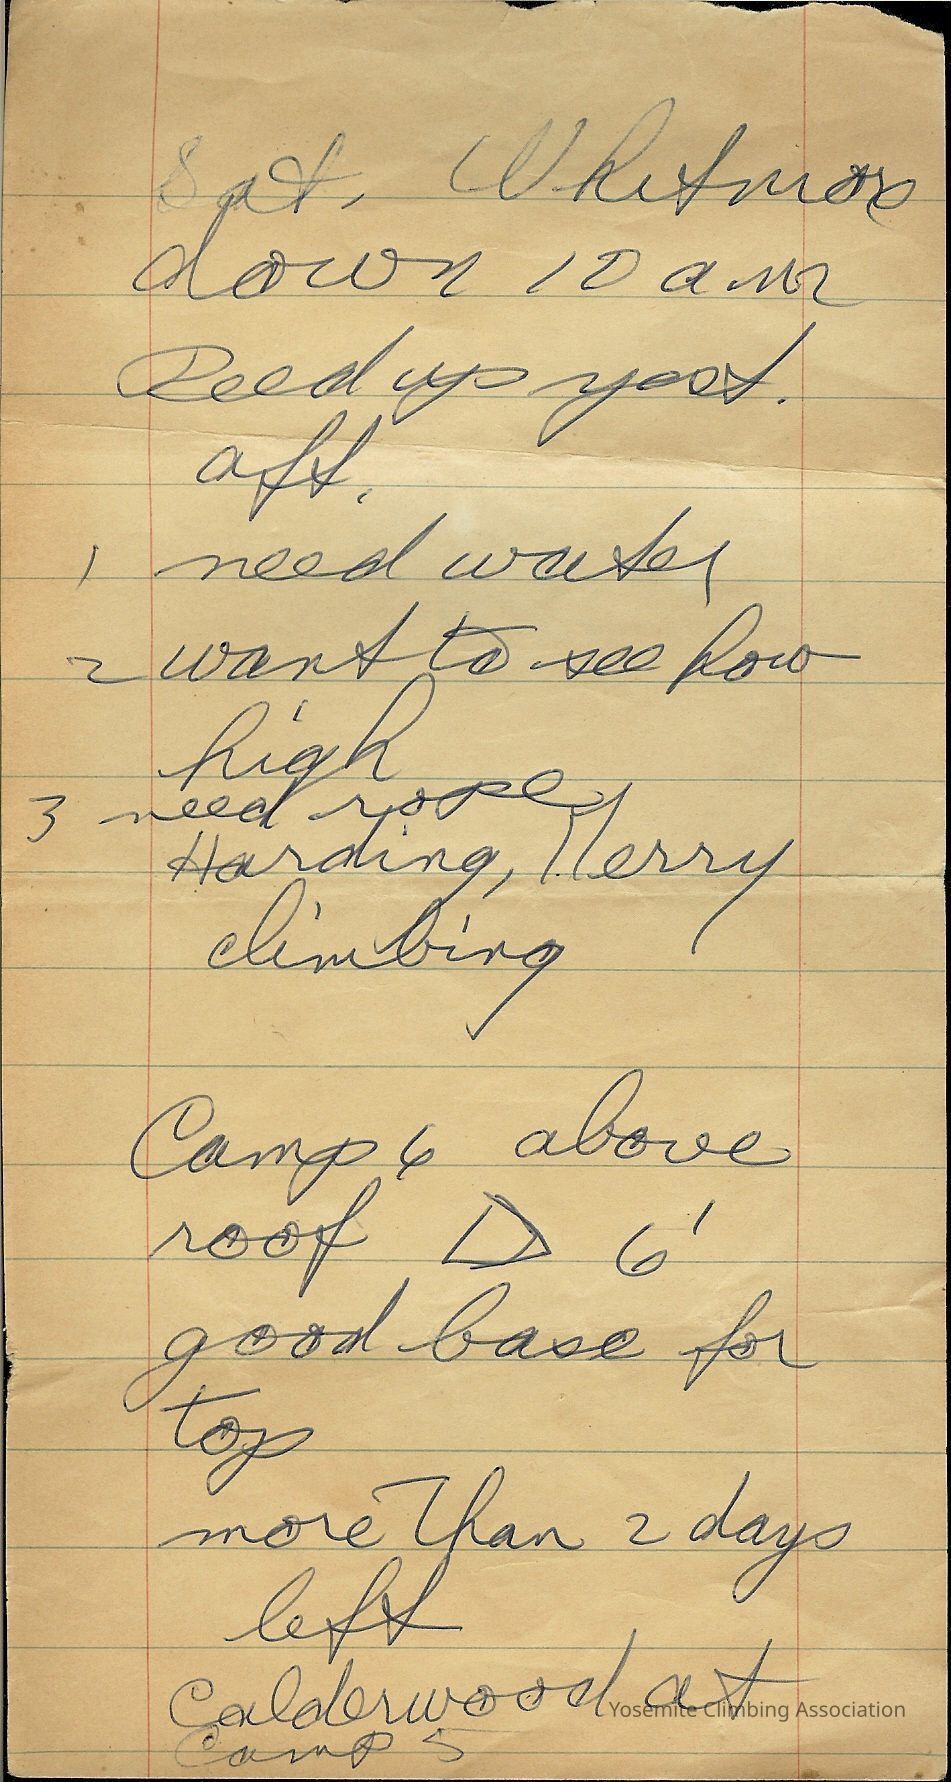 Sat. Whitmore
down 10 am
Reed up yest.
aft.
1 need water
2 want to see how
high
3 need rope
Harding, Merry
climbing
Camp 6 above
roof 6'
good base for
top
more than 2 days
left
Calderwood at
Camp 5
Yosemite Climbing Association